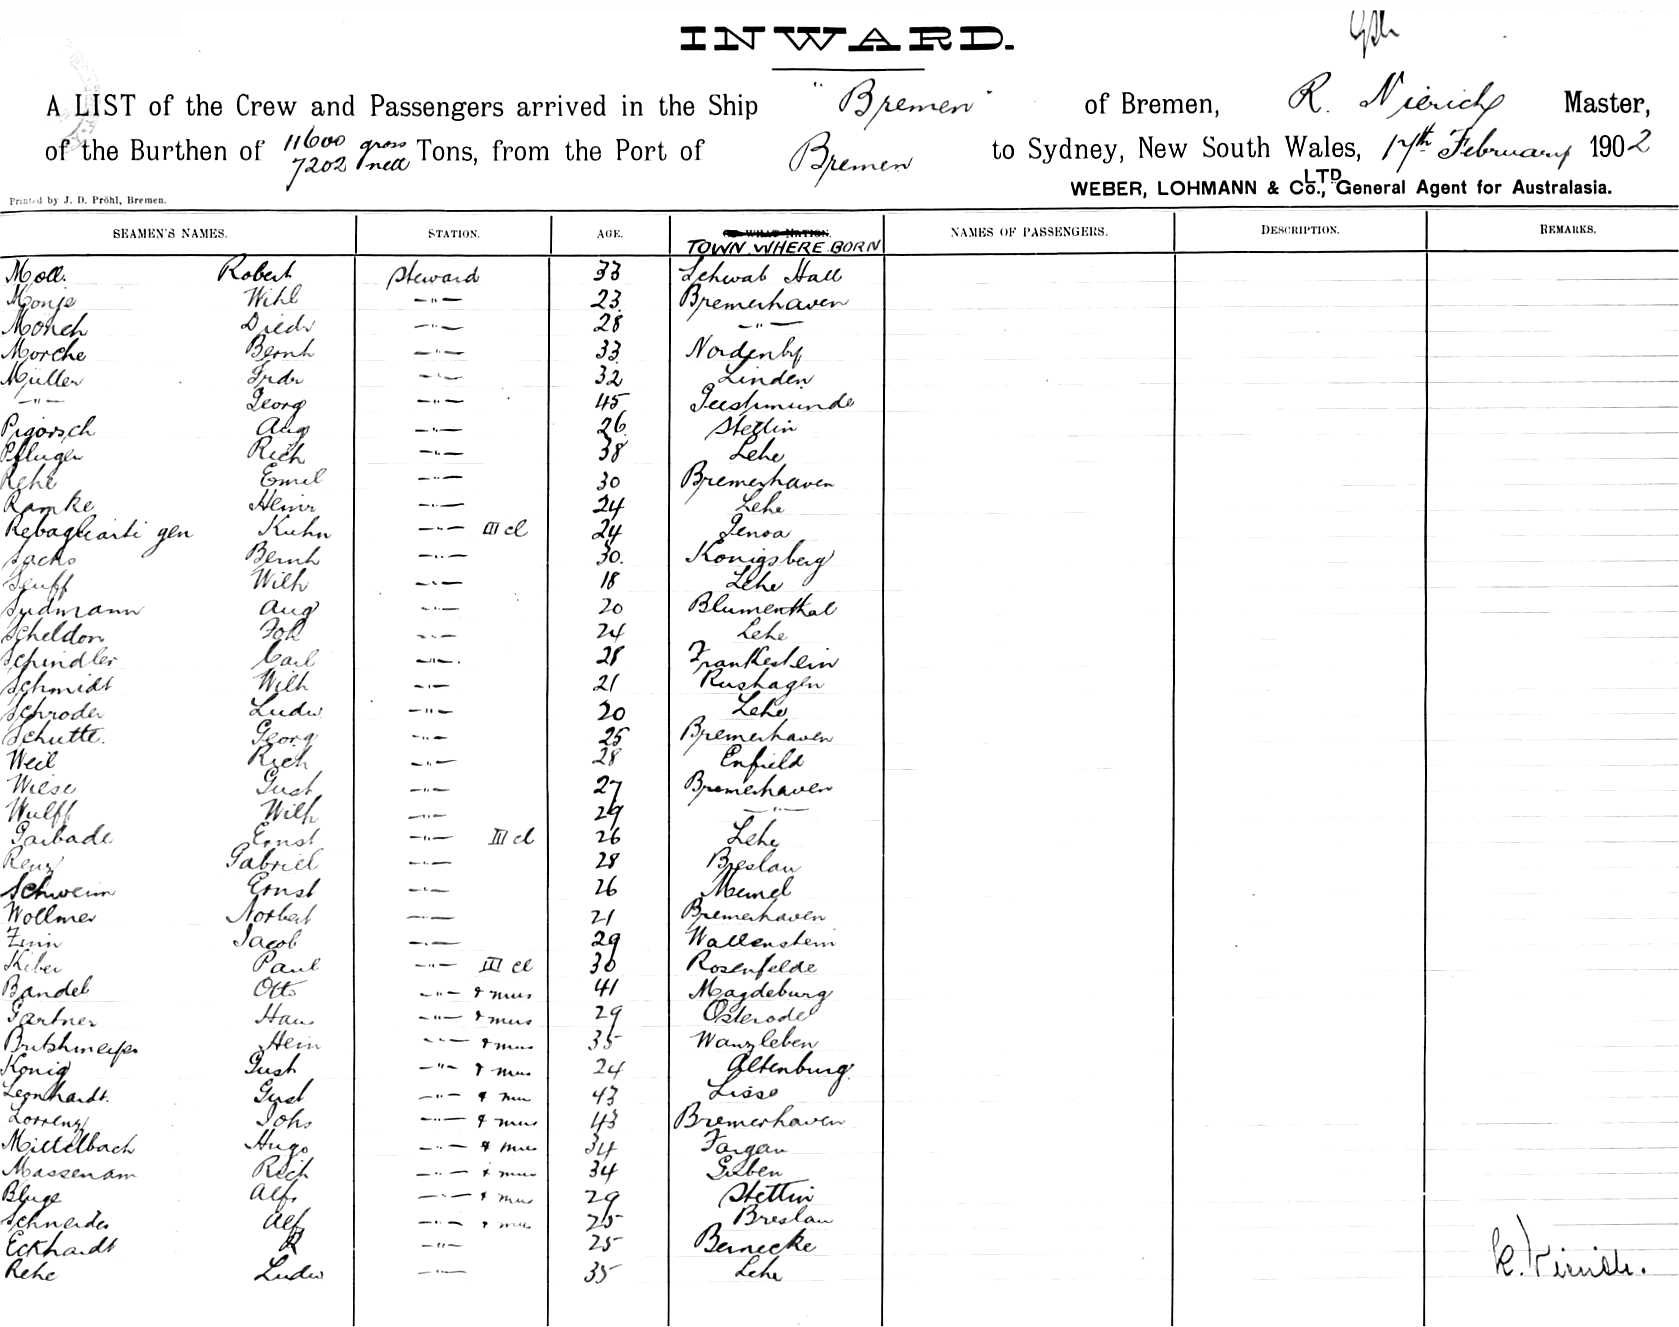 INWARD.
A LIST of the Crew and Passengers arrived in the Ship "Bremen" of Bremen, R. Nierich Master,
of the Burthen of 11600 gross 7202 nett Tons, from the Port of Bremen to Sydney, New South Wales, 17th February 1902
WEBER, LOHMANN & Co., LTD General Agent for Australasia.
Printed by J. D. Pröhl, Bremen.
SEAMEN'S NAMES. STATION. AGE. TOWN WHERE BORN NAMES OF PASSENGERS. DESCRIPTION. REMARKS.
Moll. Robert Steward 33 Schwab Hall
Monje Wihl —"— 23 Bremerhaven
Monch Diedr —"— 28 —"—
Morche Bernh —"— 33
Müller Frdr —"— 32 Linden
—"— Georg —"— 45 Geestemünde
Pigorsch Aug —"— 26 Stettin
Pfluger Rich —"— 38 Lehe
Rehe Emil —"— 30 Bremerhaven
Ramke Heinr —"— 24 Lehe
Rebagliarti gen Kuhn —"— III cl 24 Genoa
Sachs Bernh —"— 30. Konigsberg
Seuff Wilh —"— 18 Lehe
Sudmann Aug —"— 20 Blumenthal
Scheldon Joh —"— 24 Lehe
Schindler Carl —"— 28 Frankestein
Schmidt Wilh —"— 21 Rushagen
Schroder Ludw —"— 20 Lehe
Schutte. Georg —"— 25 Bremerhaven
Weil Rich —"— 28 Enfield
Wiese Gust —"— 27 Bremerhaven
Wulff Wilh —"— 29 —"—
Garbade Ernst —"— III cl 26 Lehe
Renz Gabriel —"— 28 Breslau
Schweim Ernst —"— 26 Memel
Wollmer Norbert —"— 21 Bremerhaven
Zinn Jacob —"— 29 Wallenstein
Kiber Paul —"— III cl 30 Rosenfelde
Bandel Otto —"— & mus 41 Magdeburg
Gartner Hans —"— & mus 29 Osterode
Hein —"— & mus 35 Wanzleben
Konig Gust —"— & mus 24 Altenburg
Leonhardt. Gust —"— & mus 43 Lissa
Lorrenz Johs —"— & mus 43 Bremerhaven
Mittelbach Hugo —"— & mus 34
Massenam Rich —"— & mus 34 Guben
Bluge Alfr —"— & mus 29 Stettin
Schneider Alf —"— & mus 25 Breslau
Eckhardt R —"— 25 Bernecke
Rehe Ludw —"— 35 Lehe
R. Nierich.